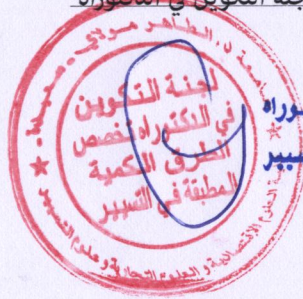 جنة التكوين في الدكتوراه
جامعة د. الطاهر مولاي - سعيدة -
لجنة التكوين
في الدكتوراه تخصص
الطرق الكمية
المطبقة في التسيير
العلوم الاقتصادية و العلوم التجارية و علوم التسيير
توراه
سيير